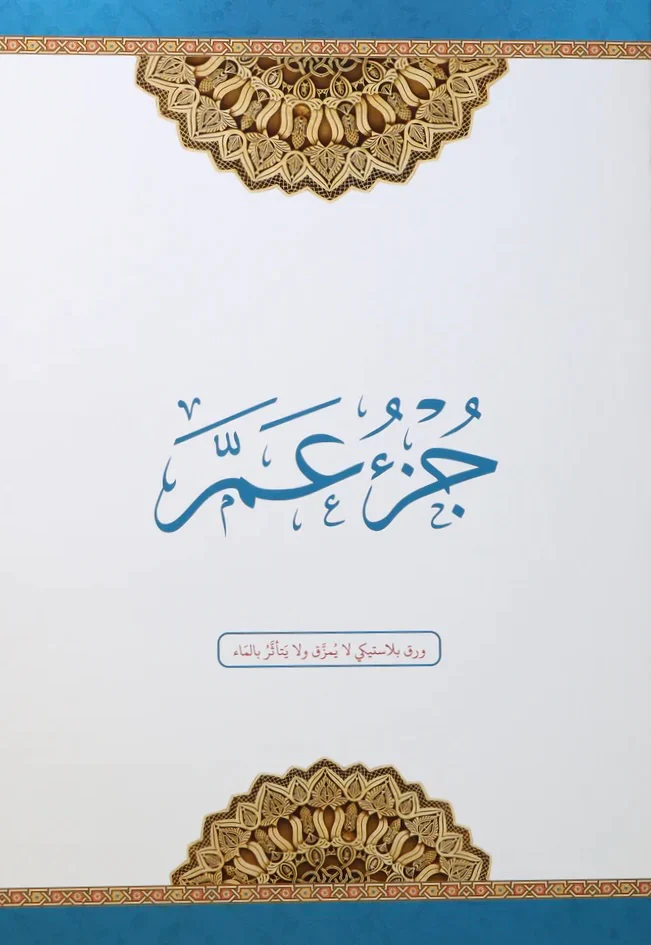 جُزْءُ عَمَّ
ورق بلاستيكي لا يُمزَّق ولا يَتأثَّرُ بالمَاء